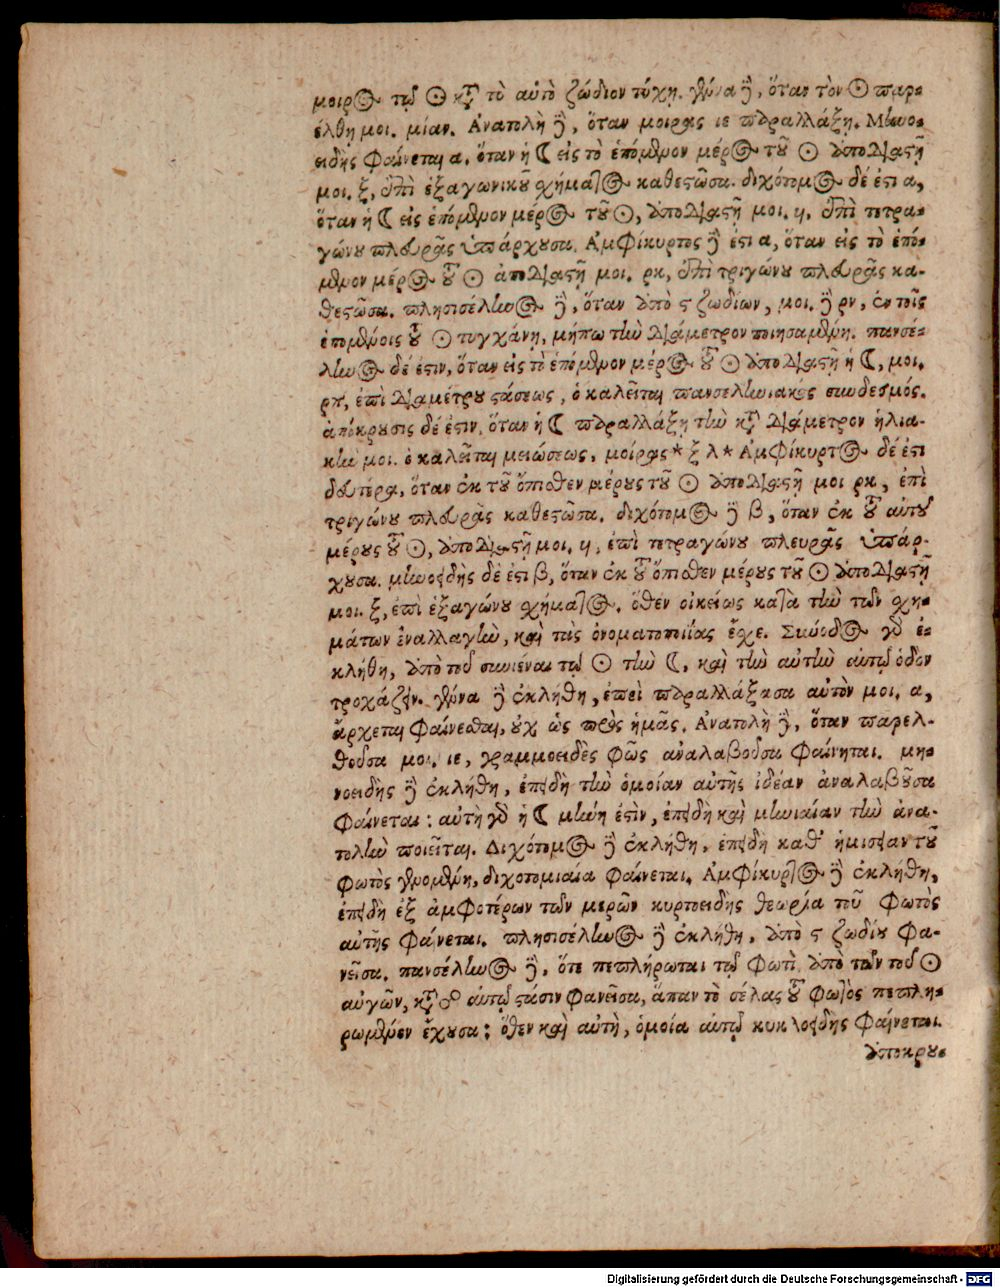 μοιρος τῷ ☉ κατὰ τὸ αὐτὸ ζώδιον τύχῃ. γέννα δὲ, ὅταν τὸν ☉ παρ-
έλθῃ μοι. μίαν. Ἀνατολὴ δὲ, ὅταν μοιρας ιε παραλλάξῃ. Μηνο-
ειδὴς φαίνεται α. ὅταν ἡ ☾ εἰς τὸ ἑπόμενον μέρος τοῦ ☉ ἀποδιαστῇ
μοι. ξ, ἐπὶ ἑξαγωνικοῦ σχήματος καθεστῶσα. διχότομος δέ ἐστι α,
ὅταν ἡ ☾ εἰς ἑπόμενον μέρος τοῦ ☉, ἀποδιαστῇ μοι. ϟ. ἐπὶ τετρα-
γώνου πλευρᾶς ὑπάρχουσα. Ἀμφίκυρτος δὲ ἐστι α, ὅταν εἰς τὸ ἑπό-
μενον μέρος τοῦ ☉ ἀποδιαστῇ μοι. ρκ, ἐπὶ τριγώνου πλευρᾶς κα-
θεστῶσα. πλησισέληνος δὲ, ὅταν ἀπὸ ϛ ζωδίων, μοι. δὲ ρν, ἐν τοῖς
ἑπομένοις τοῦ ☉ τυγχάνῃ, μήπω τὴν διάμετρον ποιησαμένη. πανσέ-
ληνος δέ ἐστιν, ὅταν εἰς τὸ ἑπόμενον μέρος τοῦ ☉ ἀποδιαστῇ ἡ ☾, μοι.
ρπ, ἐπὶ διαμέτρου στάσεως, ὁ καλεῖται πανσεληνιακός συνδεσμός.
ἀπόκρυσις δέ ἐστιν, ὅταν ἡ ☾ παραλλάξῃ τὴν κατὰ διάμετρον ἡλια-
κὴν μοι. ὁ καλεῖται μειώσεως, μοίρας * ξ λ * Ἀμφίκυρτος δέ ἐστι
δευτέρα, ὅταν ἐκ τοῦ ὄπισθεν μέρους τοῦ ☉ ἀποδιαστῇ μοι ρκ, ἐπὶ
τριγώνου πλευρὰς καθεστῶσα. διχότομος δὲ β, ὅταν ἐκ τοῦ αὐτοῦ
μέρους τοῦ ☉, ἀποδιαστῇ μοι. ϟ, ἐπὶ τετραγώνου πλευρᾶς ὑπάρ-
χουσα. μηνοειδὴς δὲ ἐστι β, ὅταν ἐκ τοῦ ὄπισθεν μέρους τοῦ ☉ ἀποδιαστῇ
μοι. ξ, ἐπὶ ἑξαγώνου σχήματος. ὅθεν οἰκείως κατὰ τὴν τῶν σχη-
μάτων ἐναλλαγὴν, καὶ τὰς ὀνοματοποιΐας ἔσχε. Σύνοδος γὰρ ἐ-
κλήθη, ἀπὸ τοῦ συνιέναι τῷ ☉ τὴν ☾, καὶ τὴν αὐτὴν αὐτῷ ὁδὸν
τροχάζειν. γέννα δὲ ἐκλήθη, ἐπεὶ παραλλάξασα αὐτὸν μοι. α,
ἄρχεται φαίνεσθαι, οὐχ ὡς πρὸς ἡμᾶς. Ἀνατολὴ δὲ, ὅταν παρελ-
θοῦσα μοι. ιε, γραμμοειδὲς φῶς ἀναλαβοῦσα φαίνηται. μη-
νοειδὴς δὲ ἐκλήθη, ἐπειδὴ τὴν ὁμοίαν αὐτῆς ἰδέαν ἀναλαβοῦσα
φαίνεται : αὐτὴ γὰρ ἡ ☾ μήνη ἐστὶν, ἐπειδὴ καὶ μηνιαίαν τὴν ἀνα-
τολὴν ποιεῖται. Διχότομος δὲ ἐκλήθη, ἐπειδὴ καθ’ ἡμισείαν τοῦ
φωτὸς γενομένη, διχοτομιαία φαίνεται. Ἀμφίκυρτος δὲ ἐκλήθη,
ἐπειδὴ ἐξ ἀμφοτέρων τῶν μερῶν κυρτοειδὴς θεωρία τοῦ φωτὸς
αὐτῆς φαίνεται. πλησισέληνος δὲ ἐκλήθη, ἀπὸ ϛ ζωδίου φα-
νεῖσα. πανσέληνος δὲ, ὅτε πεπλήρωται τῷ φωτὶ ἀπὸ τῶν τοῦ ☉
αὐγῶν, κατὰ ☍ αὐτῷ στάσιν φανεῖσα, ἅπαν τὸ σέλας τοῦ φωτὸς πεπλη-
ρωμένεν ἔχουσα : ὅθεν καὶ αὐτὴ, ὁμοία αὐτῷ κυκλοειδὴς φαίνεται.
ἀποκρου-
Digitalisierung gefördert durch die Deutsche Forschungsgemeinschaft - DFG